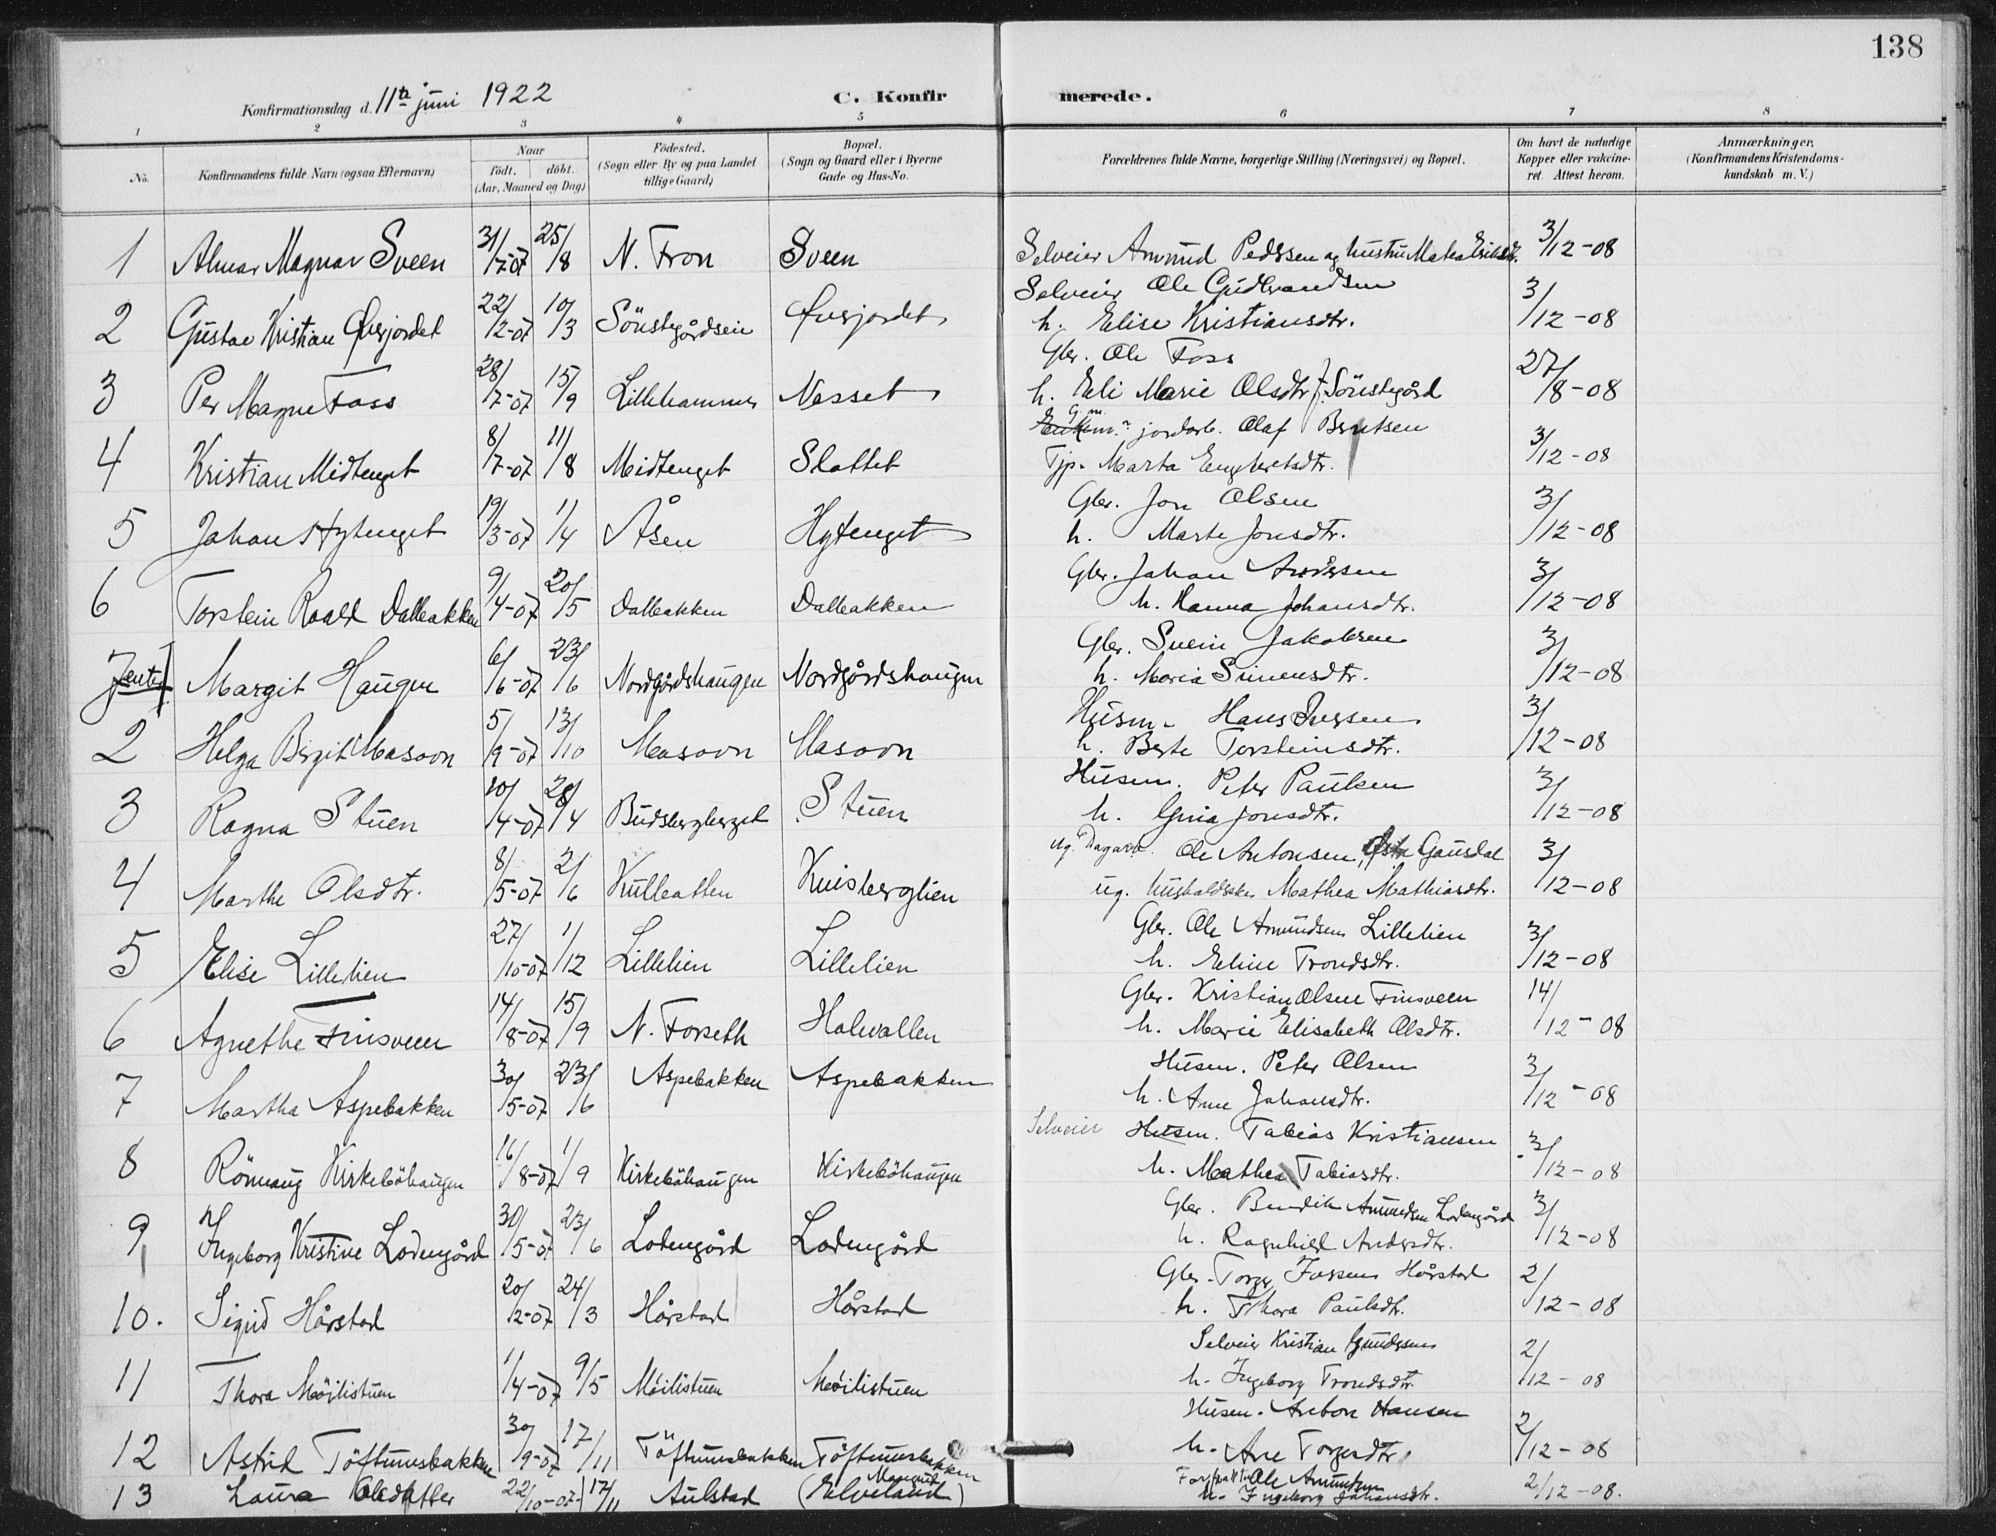 138
Konfirmationsdag d. 11te juni 1922 C. Konfirmerede.
1 2 3 4 5 6 7 8
No. Konfirmandens fulde Navn (ogsaa Efternavn) Naar født. døbt. (Aar, Maaned og Dag) Fødested. (Sogn eller By og paa Landet tillige Gaard) Bopæl. (Sogn og Gaard eller i Byerne Gade og Hus-No. Forældrenes fulde Navne, borgerlige Stilling (Næringsvei) og Bopæl. Om havt de naturlige Kopper eller vakcineret. Attest herom. Anmærkninger. (Konfirmandens Kristendomskundskab m. V.)
1 Almar Magnar Sveen 31/7-07 25/8 N. Fron Sveen Selveier Amund Pedersen og hustru 3/12-08
2 Gustav Kristian Øverjordet 22/2-07 10/3 Sönstegårdseie Øverjordet Selveier Ole Gudbrandsen
h. Elise Kristiansdtr. 3/12-08
3 Per Magne Foss 28/7-07 15/9 Lillehammer Nesset Gbr. Ole Foss
h. Eli Marie Olsdtr f. Sönstegård 27/8-08
4 Kristian Midtenget 8/7-07 11/8 Midtenget Slottet G.m. jordarb. Olaf Berntsen
Tjp. Marta Engebretsdtr. 3/12-08
5 Johan Hytenget 19/3-07 1/4 Åsen Hytenget Gbr. Jon Olsen
h. Marte Jonsdtr. 3/12-08
6 Torstein Roald Dalbakken 9/4-07 20/5 Dalbakken Dalbakken Gbr. Johan Andersen
h. Hanna Johansdtr. 3/12-08
Jenter Margit Haugen 6/6-07 23/6 Nordgårdshaugen Nordgårdshaugen Gbr. Svein Jakobsen
h. Maria Simensdtr. 3/12-08
2 Helga Birgit Masovn 5/9-07 13/10 Masovn Masovn Husm. Hans Iversen
h. Berte Torsteinsdtr. 3/12-08
3 Ragna Stuen 10/4-07 28/4 Budsbergberget Stuen Husm. Peter Paulsen
h. Gina Jonsdtr. 3/12-08
4 Marthe Olsdtr. 8/5-07 2/6 Kulbatten Kuisberglien ug. Dagarb. Ole Antonsen, Østre Gausdal
ug. husholdske Mathea Mathiasdtr. 3/12-08
5 Elise Lillelien 27/10-07 1/12 Lillelien Lillelien Gbr. Ole Amundsen Lillelien
h. Eline Trondsdtr. 3/12-08
6 Agnethe Finsveen 14/8-07 15/9 N. Forseth Holevollen Gbr. Kristian Olsen Finsveen
h. Marie Elisabeth Olsdtr. 14/12-08
7 Martha Aspebakken 30/5-07 23/6 Aspebakken Aspebakken Husm. Peter Olsen
h. Anne Johansdtr. 3/12-08
8 Rönnaug Kirkeböhaugen 16/8-07 1/9 Kirkeböhaugen Kirkeböhaugen Selveier Husm. Tobias Kristiansen
h. Mathea Tobiasdtr. 3/12-08
9 Ingeborg Kristine Lodengård 30/5-07 23/6 Lodengård Lodengård Gbr. Bendik Amundsen Lodengård
h. Ragnhild Andersdtr. 3/12-08
10. Sigrid Hårstad 20/2-07 24/3 Hårstad Hårstad Gbr. Torger Iversen Hårstad
h. Thora Paulsdtr. 2/12-08
11 Thora Möilistuen 1/4-07 9/5 Möilistuen Möilistuen Selveier Kristian Gundersen
h. Ingeborg Trondsdtr. 2/12-08
12 Astrid Töftumsbakken 30/9-07 17/11 Töftumsbakken Töftumsbakken Husm. Anton Hansen
h. Ane Torgersdtr. 2/12-08
13 Laura Olsdatter 22/10-07 17/11 Aulstad (Elveland) Forpakter Ole Amundsen
h. Ingeborg Johansdtr. 2/12-08.